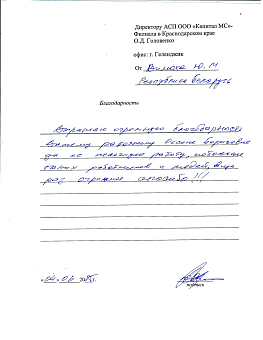 Директору АСП ООО «Капитал МС»-
Филиала в Краснодарском крае
О.Д. Головенко
офис: г. Геленджик
От Ю. М
Республика Беларусь
Благодарность
Выражаю огромную благодарность
вашему работнику Оксане
за ее работу, побольше
таких работников и людей, еще
раз огромное спасибо!!!
подпись